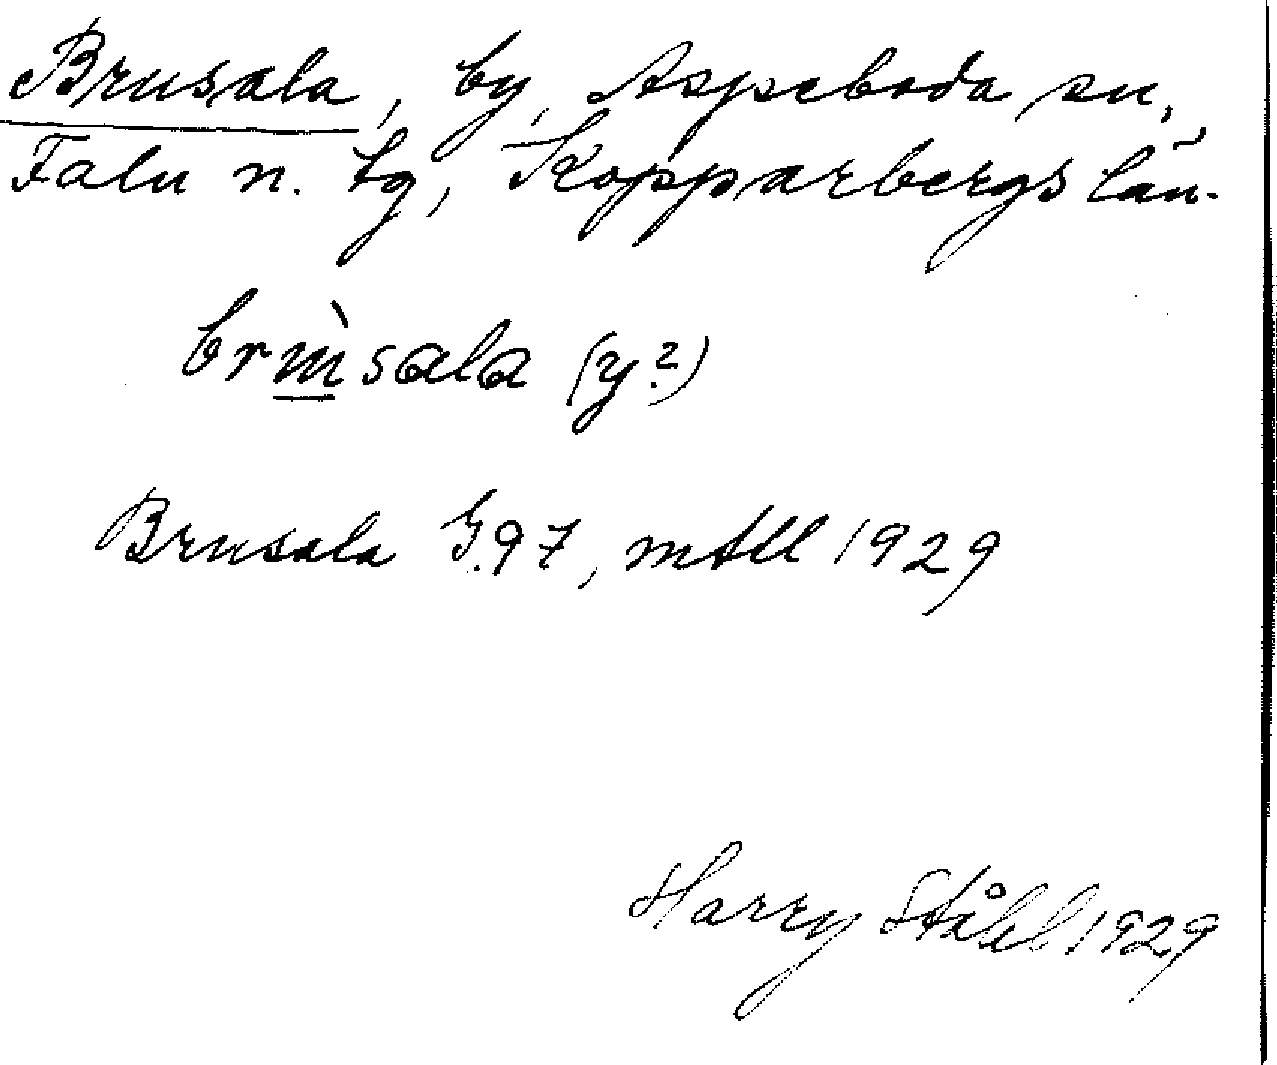 Brusala, by, Aspeboda sn,
Falu n. tg, Kopparbergs län.
(y?)
Brusala G.97, mtll 1929
Harry Ståhl 1929